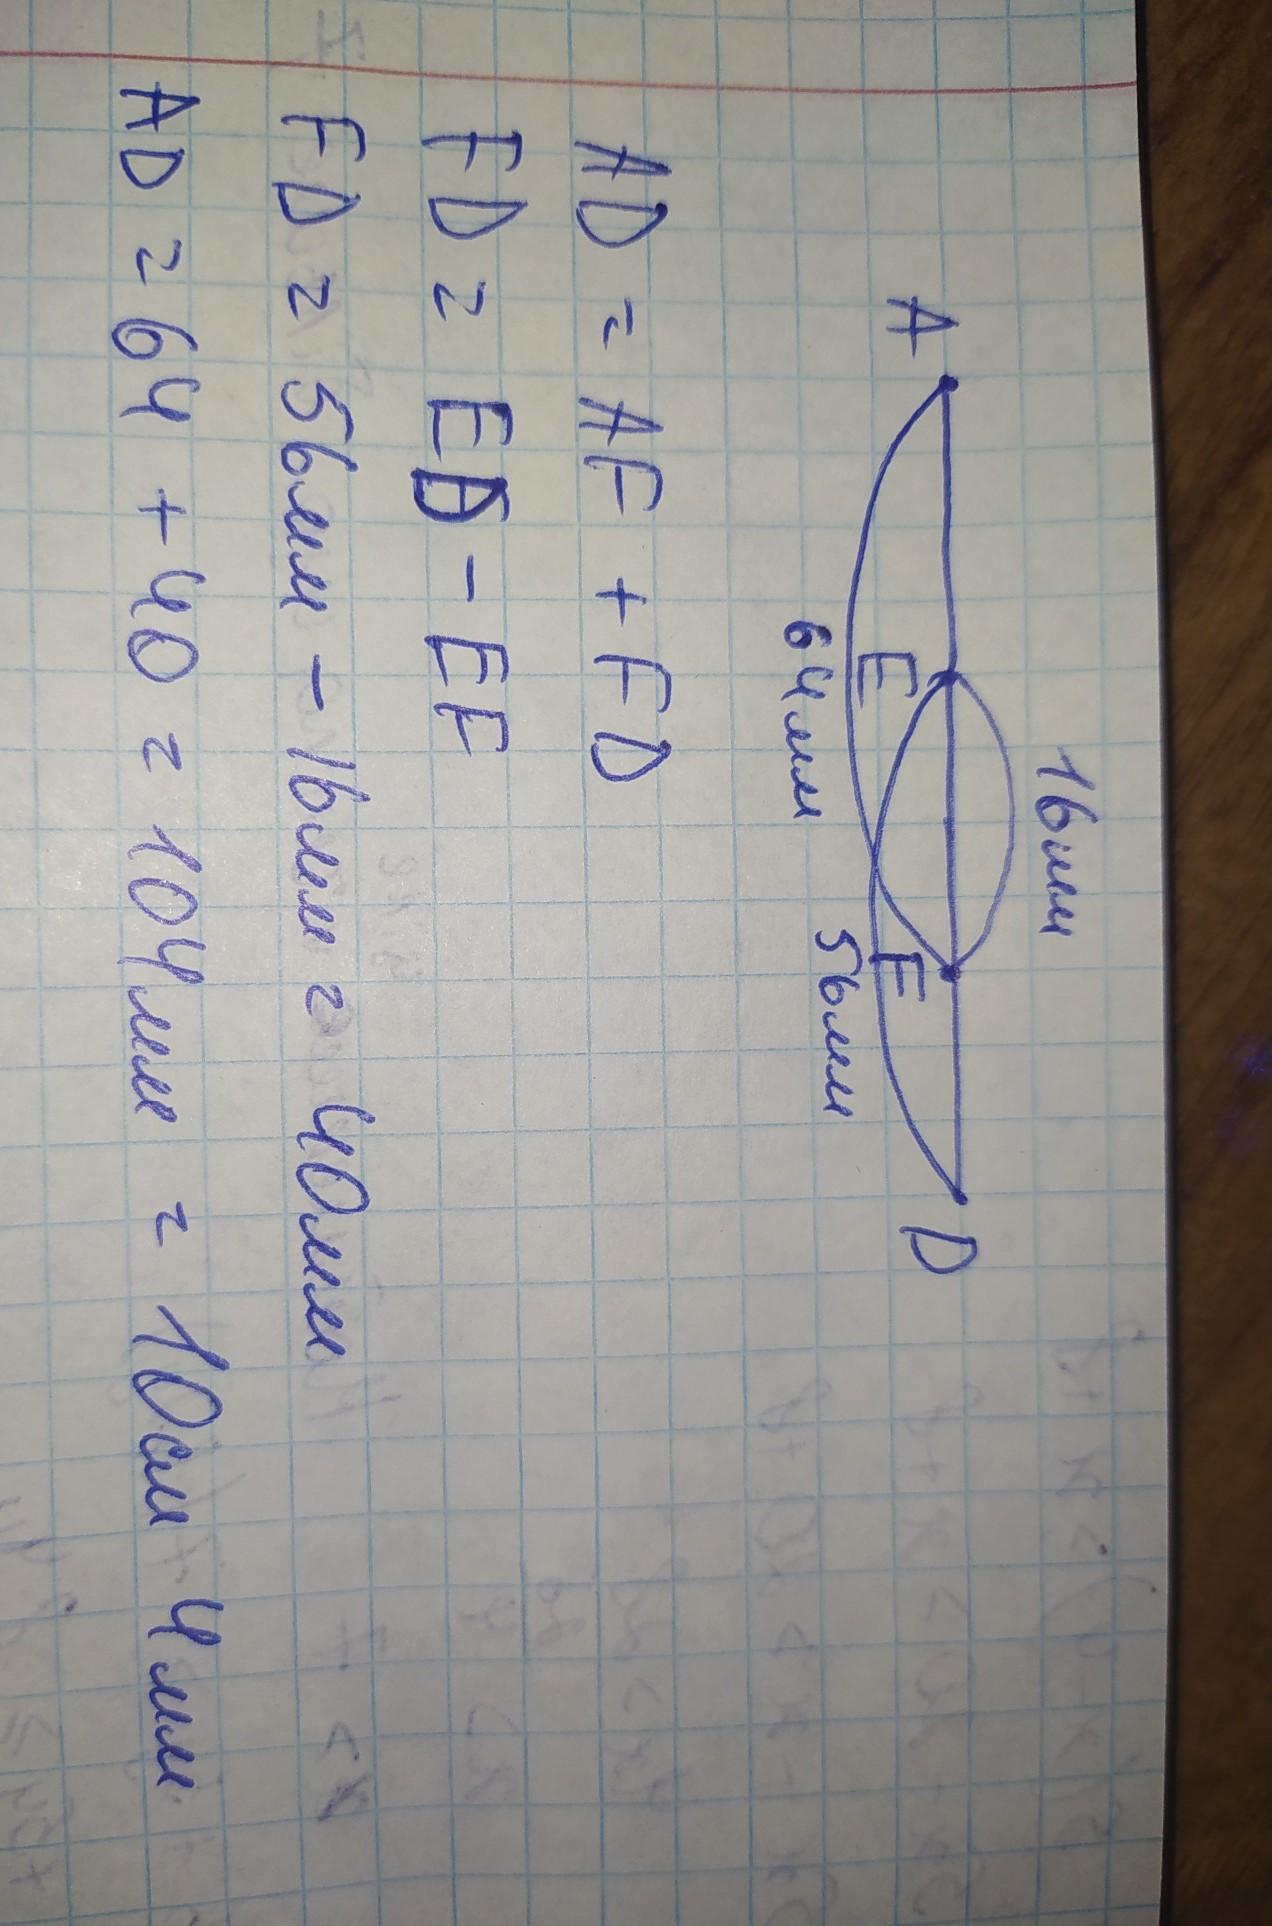 16мм
A E F D
64мм 56мм
AD = AF + FD
FD = ED - EF
FD = 56мм - 16мм = 40мм
AD = 64 + 40 = 104мм = 10см 4мм